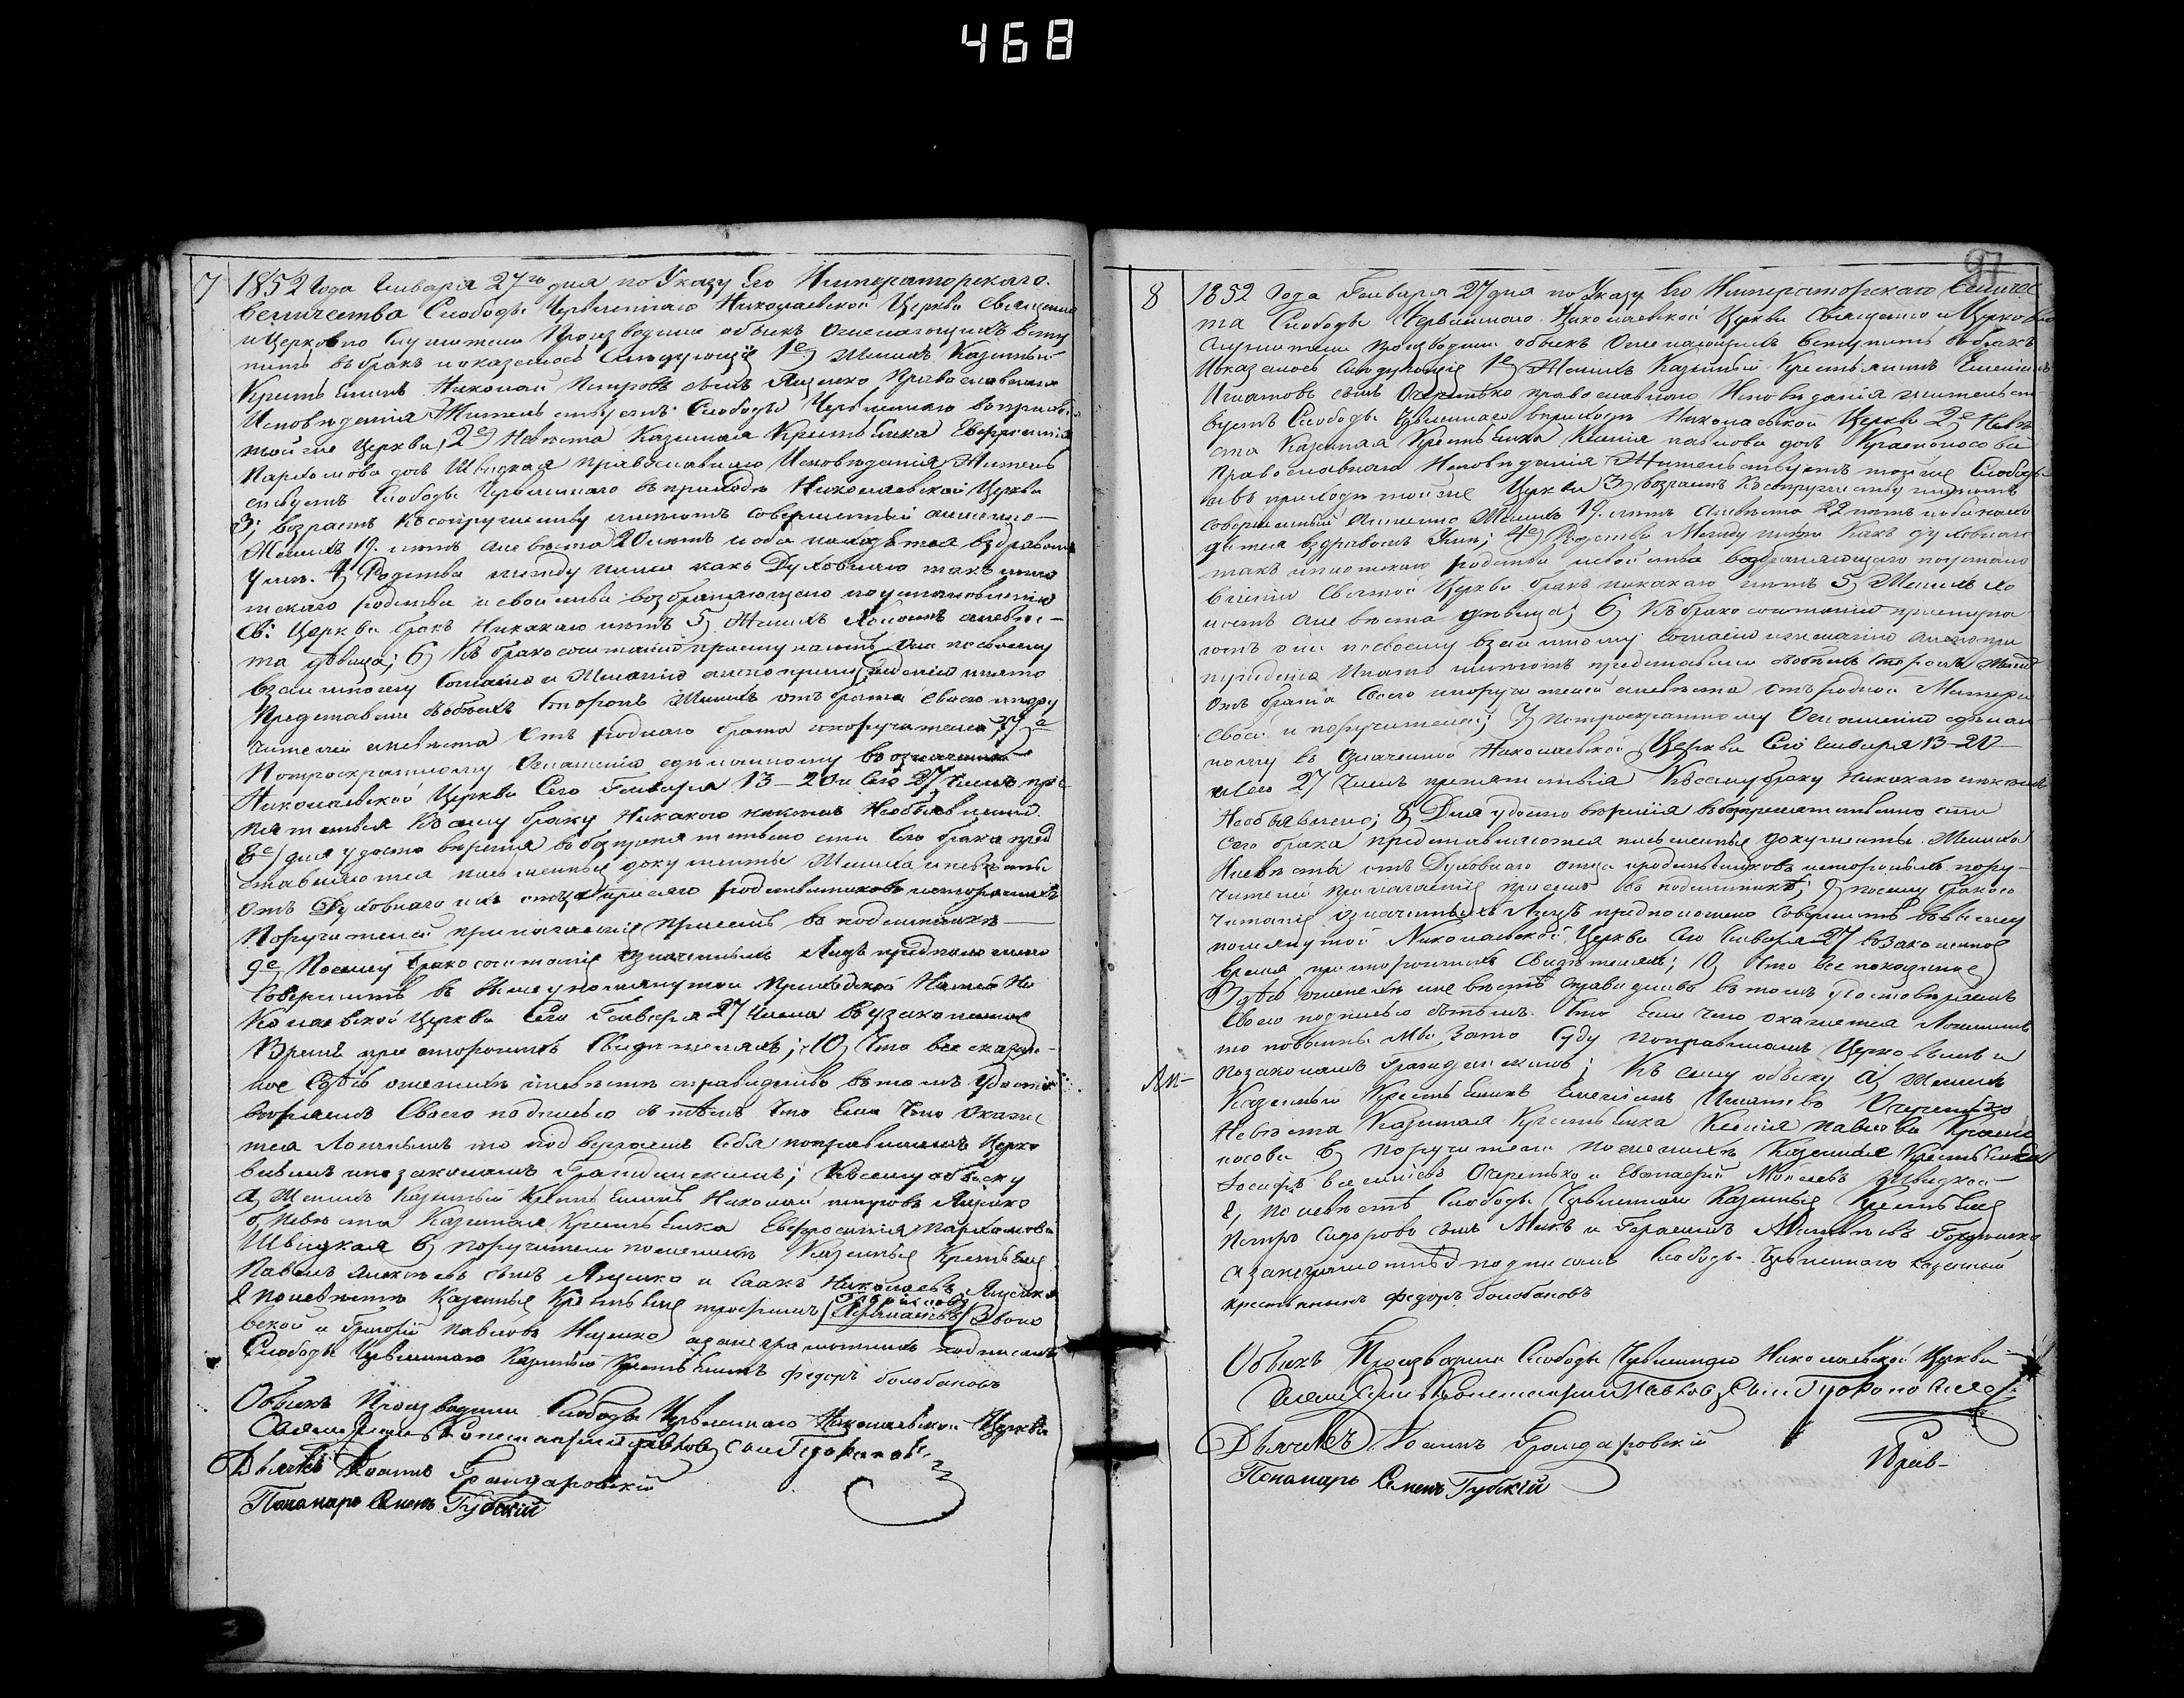 468
7
1852 Года Января 27го дня по Указу Его Императорскаго
величества Слободы Червленнаго Николаевской Церкви Священно
и Церковно служители Производили обыскъ о желающихъ всту
пить въ бракъ и оказалось Следующее 1е) Женихъ Казенный
Крестьянинъ Николай Петровъ сынъ Яценко Православнаго
Исповеданія Жительствуетъ Слободы Червленнаго въ приходе
той же Церкви, 2е) Невеста Казенная Крестьянка Евфросинія
Пархомова дочь Швецкая православнаго Исповеданія Житель
ствуетъ Слободы Червленнаго въ приходе Николаевской Церкви
3; возрастъ къ супружеству имеютъ совершенный а именно
Женихъ 19. летъ а невеста 20 летъ и оба находятся въ здравомъ
уме. 4) Родства между ними какъ Духовнаго такъ и пло
тскаго родства и свойства возбраняющаго по установленію
Св: Церкви бракъ Никакаго нетъ 5) Женихъ Холостъ а невес-
та девица; 6) Къ бракосочетанію приступаютъ Они по своему
взаимному Согласію и Желанію а не по принужденію и на то
Представили съ обеихъ Сторонъ Женихъ отъ брата своего и пору
чителей а невеста Отъ роднаго брата и поручителей 7) а
Потроекратному Оглашенію сделанному въ означенной
Николаевской Церкви Сего Генваря 13-20 и Сего 27 Чиселъ пре
пятствія Къ сему браку Никакого никемъ Необъявлено
8е) для удостоверенія въ безпрепятственности Сего брака пред
ставляются письменные документы Жениха и невесты
Отъ Духовнаго ихъ отца и родственниковъ и стороннихъ
Поручителей прилагаемые при семъ въ подлиннике
9е) Посему Бракосочетаніе означенныхъ Лицъ предположено
Совершить въ вышеупомянутой Приходской Нашей Ни
колаевской Церкви Сего Генваря 27 числа въ узаконенное
Время при стороннихъ Свидетеляхъ; 10) Что все сказан-
ное Здесь о женихе и невесте справедливо въ томъ удосто
веряемъ Своею подписью съ темъ Что Если Что окаже
тся Ложнымъ то подвергаемъ себя по правиламъ Церко
внымъ и по законамъ Гражданскимъ; Къ сему обыску
а) Женихъ Казенный Крестьянинъ Николай Петровъ Яценко
б) Невеста Казенная Крестьянка Евфросинія Пархомова
Швецкая в) поручители по женихе Казенные Крестьяне
Павелъ Алексеевъ сынъ Яценко и Саакъ Николаевъ Яценко
г по невесте Казенные Крестьяне Трофимъ
и Григорій Павловъ Ищенко а за неграмотныхъ подписалъ
Слободы Червленнаго Казенный Крестьянинъ Федоръ болобановъ
Обыскъ Производили Слободы Червленнаго Николаевской Церкви
Священникъ Константинъ Павловъ сынъ
Дьячекъ Иоаннъ
Пономарь Семенъ Губскій
97
8
1852 Года Генваря 27 дня по Указу Его Императорскаго Величес
тва Слободы Червленнаго Николаевской Церкви Священно и Церковно
служители производили обыскъ О желающихъ вступить въ бракъ
и оказалось Следующее 1е) Женихъ Казенный Крестьянинъ Емеліянъ
Игнатовъ сынъ Очеретько православнаго Исповеданія жительст
вуетъ Слободы Червленнаго въ приходе Николаевской Церкви 2е Неве
ста Казенная Крестьянка Ксенія павлова дочь Красноносова
Православнаго Исповеданія Жительствуетъ той же Слободы
и въ приходе той же Церкви 3) возрастъ къ супружеству имеютъ
совершенный а именно Женихъ 19. летъ а невеста 22 летъ и оба нахо
дятся въ здравомъ уме; 4е) Родства Между ними Какъ духовнаго
такъ и плотскаго родства и свойства возбраняющаго по устано
вленію Святой Церкви бракъ никакаго нетъ 5) Женихъ хо
лостъ а невеста девица; 6) Къ бракосочетанію приступа
ютъ они по своему взаимному Согласію и желанію а не по при
нужденію И на то имеютъ представили съ обеихъ сторонъ Женихъ
Отъ брата Своего и поручителей а невеста отъ родной Матери
своей и поручителей; 7) потроекратному Оглашенію сделан
ному въ означенной Николаевской Церкви Сего Генваря 13-20
и Сего 27 Чиселъ препятствія Къ сему браку никакаго никемъ
Необъявлено; 8) Для удостоверенія въ безпрепятственности
Сего брака представляются письменные документы Жениха
Невесты отъ Духовнаго отца и родственниковъ и стороннихъ пору-
чителей прилагаемые при семъ въ подлиннике; 9) посему бракосо
четаніе означенныхъ Лицъ предположено Совершить въ выше
помянутой Николаевской Церкви Сего Генваря 27 въ узаконенное
время при стороннихъ Свидетеляхъ; 10) Что все показанное
Здесь о женихе и невесте справедливо въ томъ удостоверяемъ
Своею подписью съ темъ Что Если Что окажется Ложнымъ
то повинны Мы Зато Суду по правиламъ Церковнымъ и
по законамъ Гражданскимъ; Къ сему обыску а) Женихъ
Казенный Крестьянинъ Емеліянъ Игнатовъ Очеретько
Невеста Казенная Крестьянка Ксенія павлова Красно
носова в) поручители по женихе Казенные Крестьяне
Іосифъ Очеретько и Евстафій Моисеевъ
г) по невесте Слободы Червленнаго Казенные Крестьяне
Петръ Сидоровъ сынъ и Герасимъ
а за неграмотныхъ подписалъ Слободы Червленнаго казенный
крестьянинъ федоръ болобановъ
Обыскъ Производили Слободы Червленнаго Николаевской Церкви
Священникъ Константинъ Павловъ сынъ
Дьячекъ Іоаннъ
Пономарь Семенъ Губскій